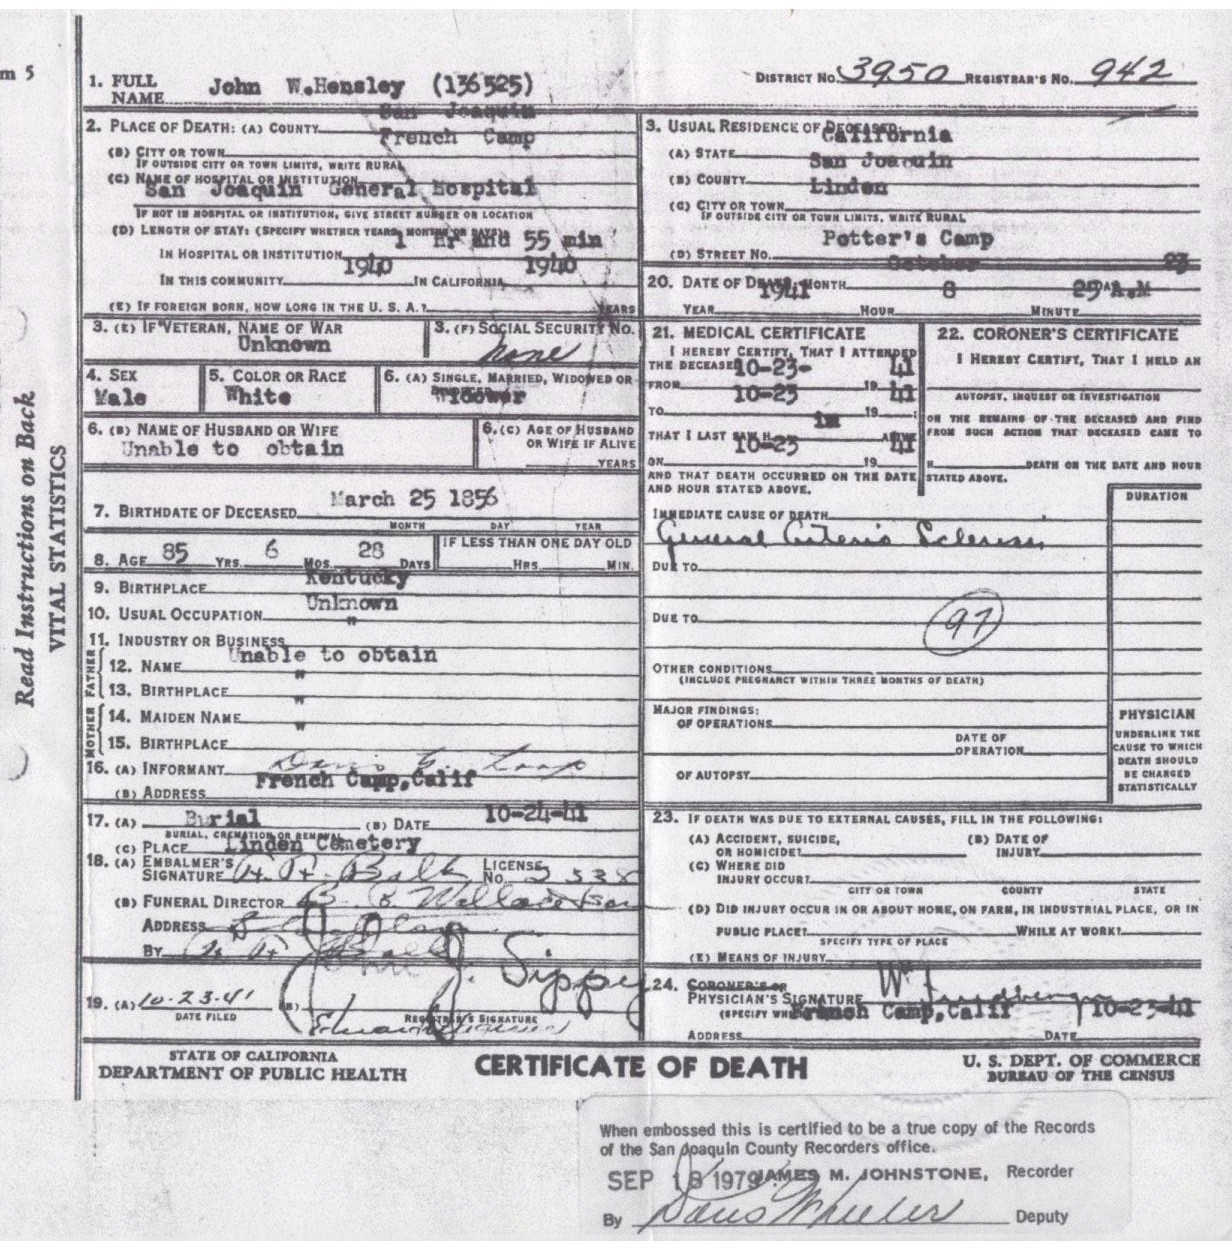 m 5
Read Instructions on Back
VITAL STATISTICS
DISTRICT NO. 3950 REGISTRAR'S NO. 942
1. FULL NAME John W.Hensley (136525)
2. PLACE OF DEATH: (A) COUNTY San Joaquin
(B) CITY OR TOWN French Camp
IF OUTSIDE CITY OR TOWN LIMITS, WRITE RURAL
(C) NAME OF HOSPITAL OR INSTITUTION
San Joaquin General Hospital
IF NOT IN HOSPITAL OR INSTITUTION, GIVE STREET NUMBER OR LOCATION
(D) LENGTH OF STAY: (SPECIFY WHETHER YEARS, MONTHS OR DAYS)
IN HOSPITAL OR INSTITUTION 1 hr and 55 min
IN THIS COMMUNITY 1940 IN CALIFORNIA 1940
(E) IF FOREIGN BORN, HOW LONG IN THE U. S. A.? YEARS
3. USUAL RESIDENCE OF DECEASED:
(A) STATE California
(B) COUNTY San Joaquin
(C) CITY OR TOWN Linden
IF OUTSIDE CITY OR TOWN LIMITS, WRITE RURAL
(D) STREET NO. Potter's Camp
3. (E) IF VETERAN, NAME OF WAR
Unknown
3. (F) SOCIAL SECURITY NO.
none
4. SEX
Male
5. COLOR OR RACE
White
6. (A) SINGLE, MARRIED, WIDOWED OR DIVORCED
Widower
6. (B) NAME OF HUSBAND OR WIFE
Unable to obtain
6. (C) AGE OF HUSBAND OR WIFE IF ALIVE
YEARS
7. BIRTHDATE OF DECEASED March 25 1856
MONTH DAY YEAR
8. AGE 85 YRS. 6 MOS. 28 DAYS
IF LESS THAN ONE DAY OLD
HRS. MIN.
9. BIRTHPLACE Kentucky
10. USUAL OCCUPATION Unknown
11. INDUSTRY OR BUSINESS "
FATHER
12. NAME Unable to obtain
13. BIRTHPLACE "
MOTHER
14. MAIDEN NAME "
15. BIRTHPLACE "
16. (A) INFORMANT
(B) ADDRESS French Camp,Calif
17. (A) Burial (B) DATE 10-24-41
BURIAL, CREMATION OR REMOVAL
(C) PLACE Linden Cemetery
18. (A) EMBALMER'S SIGNATURE LICENSE NO. 2338
(B) FUNERAL DIRECTOR B. C. Wallace & Son
ADDRESS
BY
19. (A) 10-23-41 (B) John J. Sippy
DATE FILED REGISTRAR'S SIGNATURE
20. DATE OF DEATH: MONTH October 23
YEAR 1941 HOUR 8 MINUTE 25 A.M
21. MEDICAL CERTIFICATE
I HEREBY CERTIFY, THAT I ATTENDED
THE DECEASED
FROM 10-23- 19 41
TO 10-23 19 41
THAT I LAST SAW H im ALIVE
ON 10-23 19 41
AND THAT DEATH OCCURRED ON THE DATE
AND HOUR STATED ABOVE.
22. CORONER'S CERTIFICATE
I HEREBY CERTIFY, THAT I HELD AN
AUTOPSY, INQUEST OR INVESTIGATION
ON THE REMAINS OF THE DECEASED AND FIND
FROM SUCH ACTION THAT DECEASED CAME TO
H DEATH ON THE DATE AND HOUR
STATED ABOVE.
DURATION
IMMEDIATE CAUSE OF DEATH
General Arterio Sclerosis
DUE TO
DUE TO 97
OTHER CONDITIONS
(INCLUDE PREGNANCY WITHIN THREE MONTHS OF DEATH)
MAJOR FINDINGS:
OF OPERATIONS
DATE OF OPERATION
OF AUTOPSY
PHYSICIAN
UNDERLINE THE
CAUSE TO WHICH
DEATH SHOULD
BE CHARGED
STATISTICALLY
23. IF DEATH WAS DUE TO EXTERNAL CAUSES, FILL IN THE FOLLOWING:
(A) ACCIDENT, SUICIDE, OR HOMICIDE? (B) DATE OF INJURY
(C) WHERE DID INJURY OCCUR?
CITY OR TOWN COUNTY STATE
(D) DID INJURY OCCUR IN OR ABOUT HOME, ON FARM, IN INDUSTRIAL PLACE, OR IN
PUBLIC PLACE? WHILE AT WORK?
SPECIFY TYPE OF PLACE
(E) MEANS OF INJURY
24. CORONER'S OR
PHYSICIAN'S SIGNATURE
(SPECIFY
ADDRESS French Camp,Calif DATE 10-23-41
STATE OF CALIFORNIA
DEPARTMENT OF PUBLIC HEALTH
CERTIFICATE OF DEATH
U. S. DEPT. OF COMMERCE
BUREAU OF THE CENSUS
When embossed this is certified to be a true copy of the Records
of the San Joaquin County Recorders office.
SEP 18 1979 JAMES M. JOHNSTONE, Recorder
By Doris Wheeler Deputy